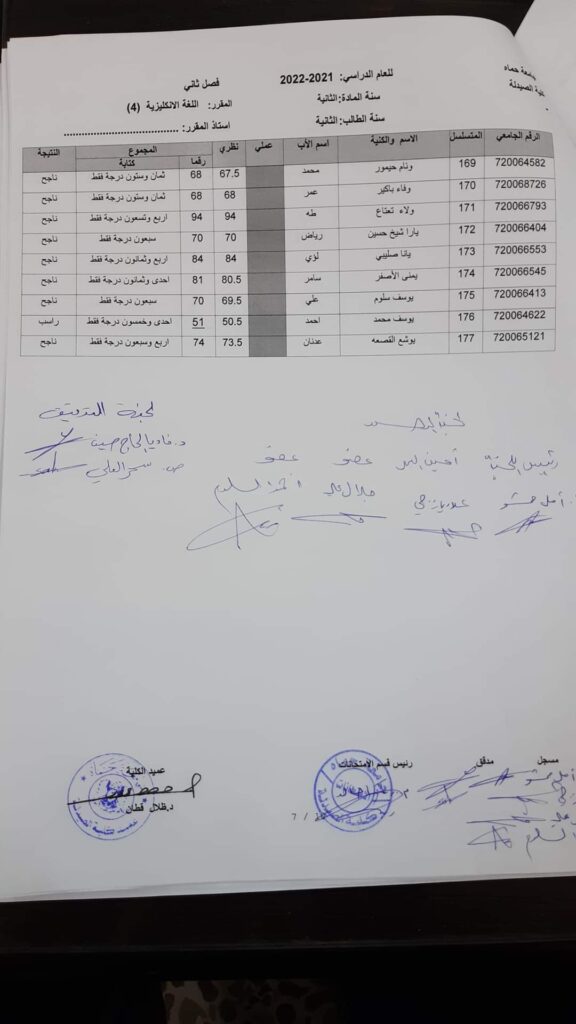 جامعة حماه
كلية الصيدلة
للعام الدراسي: 2021-2022
فصل ثاني
سنة المادة: الثانية
المقرر: اللغة الانكليزية (4)
سنة الطالب: الثانية
استاذ المقرر: ......................................
الرقم الجامعي المتسلسل الاسم والكنية اسم الأب عملي نظري المجموع النتيجة
رقما كتابة
720064582 169 وئام حيمور محمد 67.5 68 ثمان وستون درجة فقط ناجح
720068726 170 وفاء باكير عمر 68 68 ثمان وستون درجة فقط ناجح
720066793 171 ولاء تعتاع طه 94 94 اربع وتسعون درجة فقط ناجح
720066404 172 يارا شيخ حسين رياض 70 70 سبعون درجة فقط ناجح
720066553 173 يانا صليبي لؤي 84 84 اربع وثمانون درجة فقط ناجح
720066545 174 يمنى الأصفر سامر 80.5 81 احدى وثمانون درجة فقط ناجح
720066413 175 يوسف سلوم علي 69.5 70 سبعون درجة فقط ناجح
720064622 176 يوسف محمد احمد 50.5 51 احدى وخمسون درجة فقط راسب
720065121 177 يوشع القصعه عدنان 73.5 74 اربع وسبعون درجة فقط ناجح
لجنة التدقيق
د. فاديا الحاج حسين
ص. سحر العلي
رئيس اللجنة أمين السر عضو عضو
مسجل مدقق رئيس قسم الامتحانات
عميد الكلية
د.ظلال قطان
7 / 10